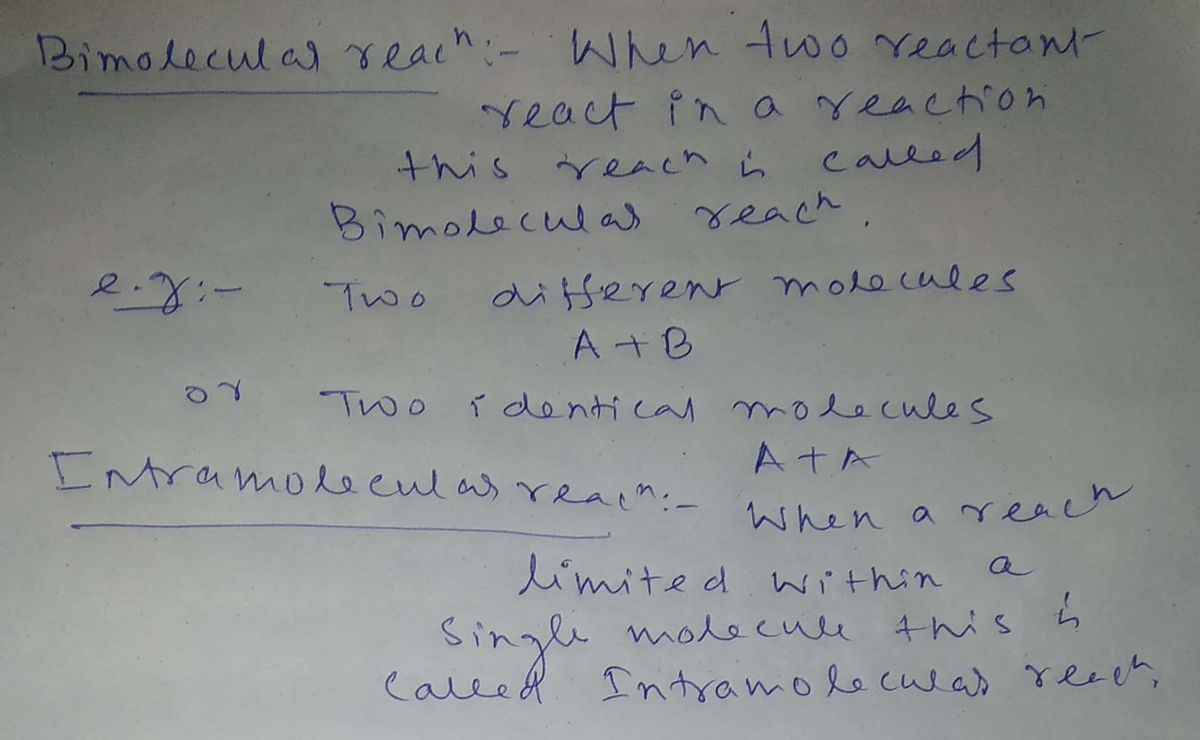 Bimolecular reacn:- When two reactant
react in a reaction
this reacn is called
Bimolecular reacn.
e.g:- Two different molecules
A + B
or Two identical molecules
A + A
Intramolecular reacn:- When a reacn
limited within a
single molecule this is
called Intramolecular reacn.